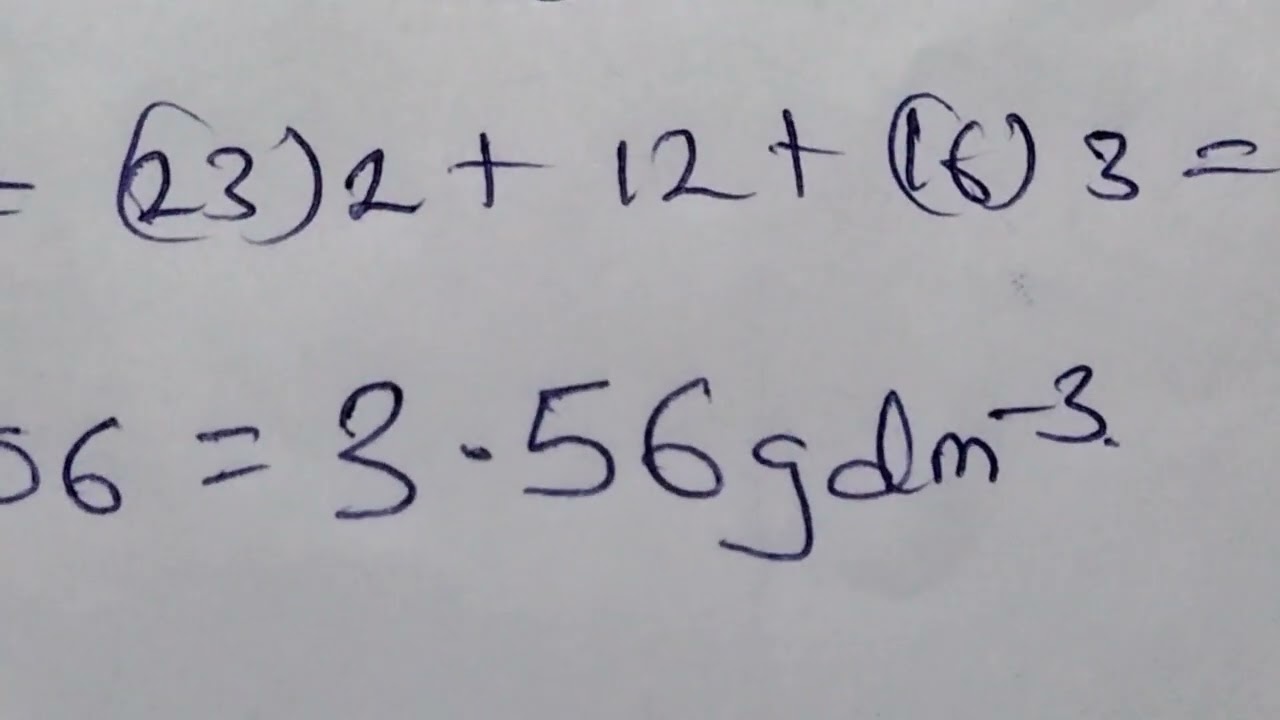 = (23)2 + 12 + (16)3 =
56 = 3.56gdm⁻³.